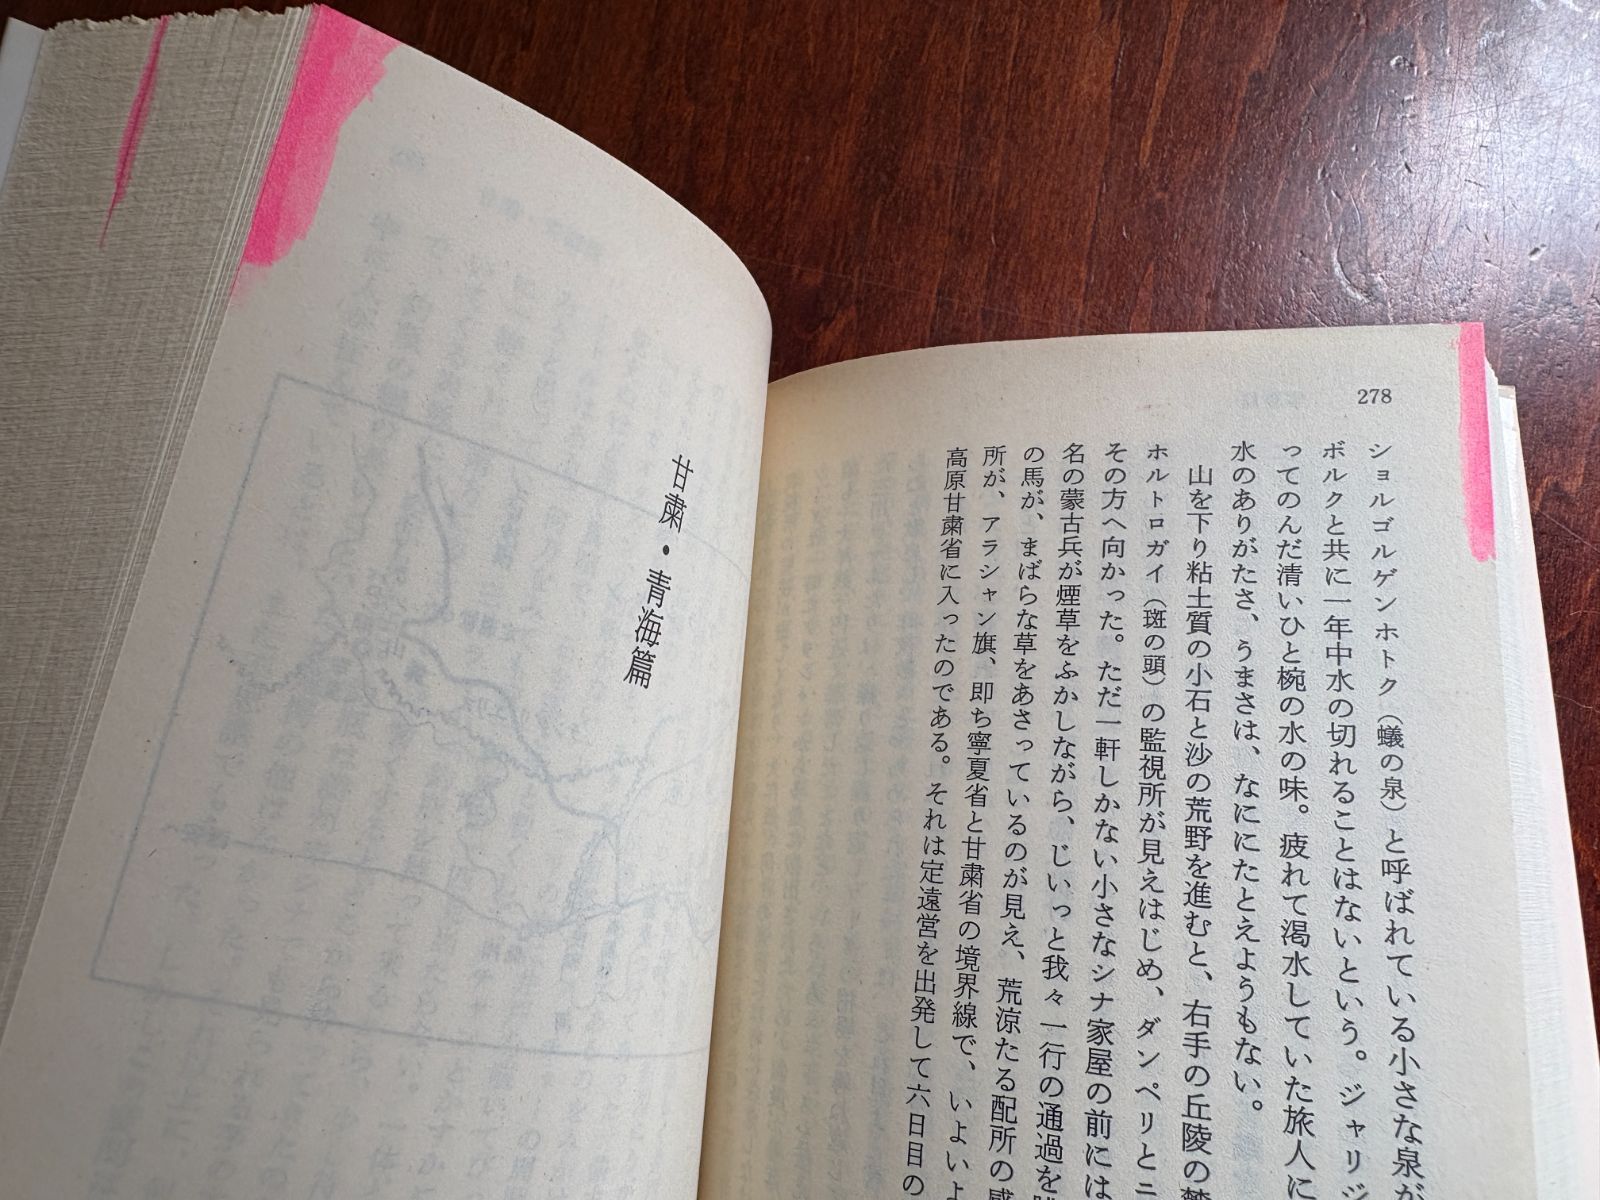 278
ショルゴルゲンホトク（蟻の泉）と呼ばれている小さな泉が
ボルクと共に一年中水の切れることはないという。ジャリジ
ってのんだ清いひと椀の水の味。疲れて渇水していた旅人に
水のありがたさ、うまさは、なににたとえようもない。
山を下り粘土質の小石と沙の荒野を進むと、右手の丘陵の
ホルトロガイ（斑の頭）の監視所が見えはじめ、ダンペリとニ
その方へ向かった。ただ一軒しかない小さなシナ家屋の前には
名の蒙古兵が煙草をふかしながら、じいっと我々一行の通過を
の馬が、まばらな草をあさっているのが見え、荒涼たる配所の感
所が、アラシャン旗、即ち寧夏省と甘粛省の境界線で、いよいよ
高原甘粛省に入ったのである。それは定遠営を出発して六日目の
甘粛・青海篇